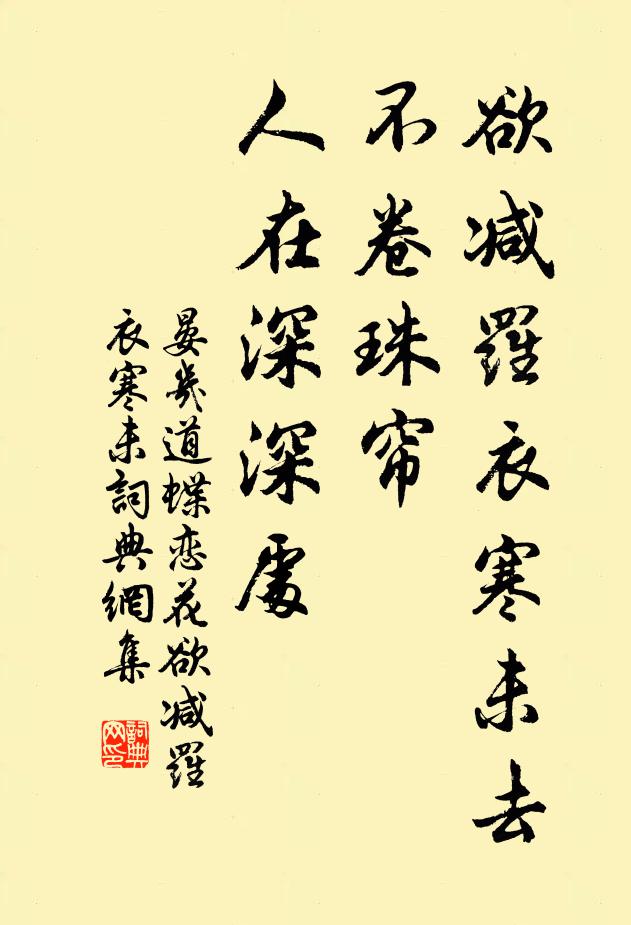 欲减羅衣寒未去
不卷珠帘
人在深深處
晏幾道蝶恋花欲减羅
衣寒未詞典網集
詞典網印